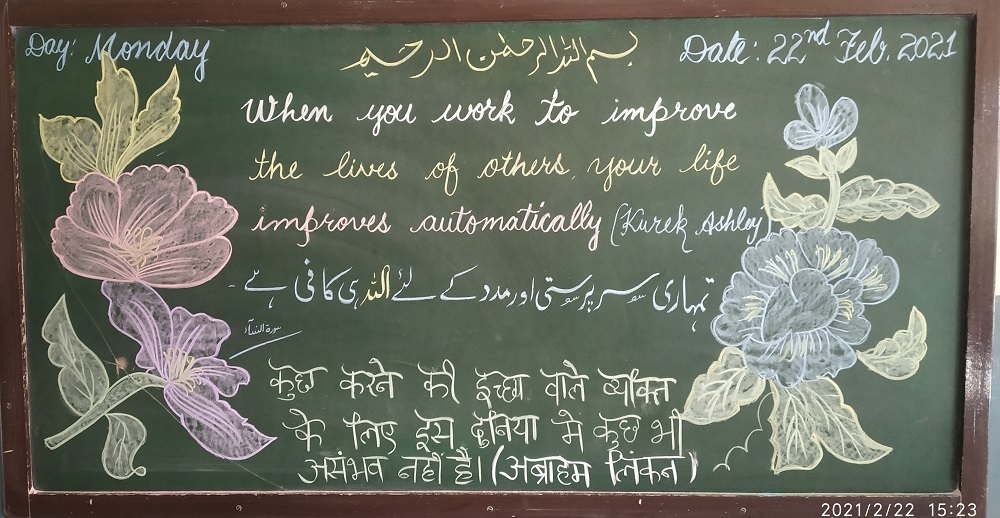 Day: Monday
بسم اللہ الرحمٰن الرحیم
Date: 22nd Feb. 2021
When you work to improve
the lives of others, your life
improves automatically (Kurek Ashley)
تمہاری سرپرستی اور مدد کے لئے اللہ ہی کافی ہے -
سورة النساء
कुछ करने की इच्छा वाले व्यक्ति
के लिए इस दुनिया मे कुछ भी
असंभव नहीं है। (अब्राहम लिंकन)
2021/2/22 15:23